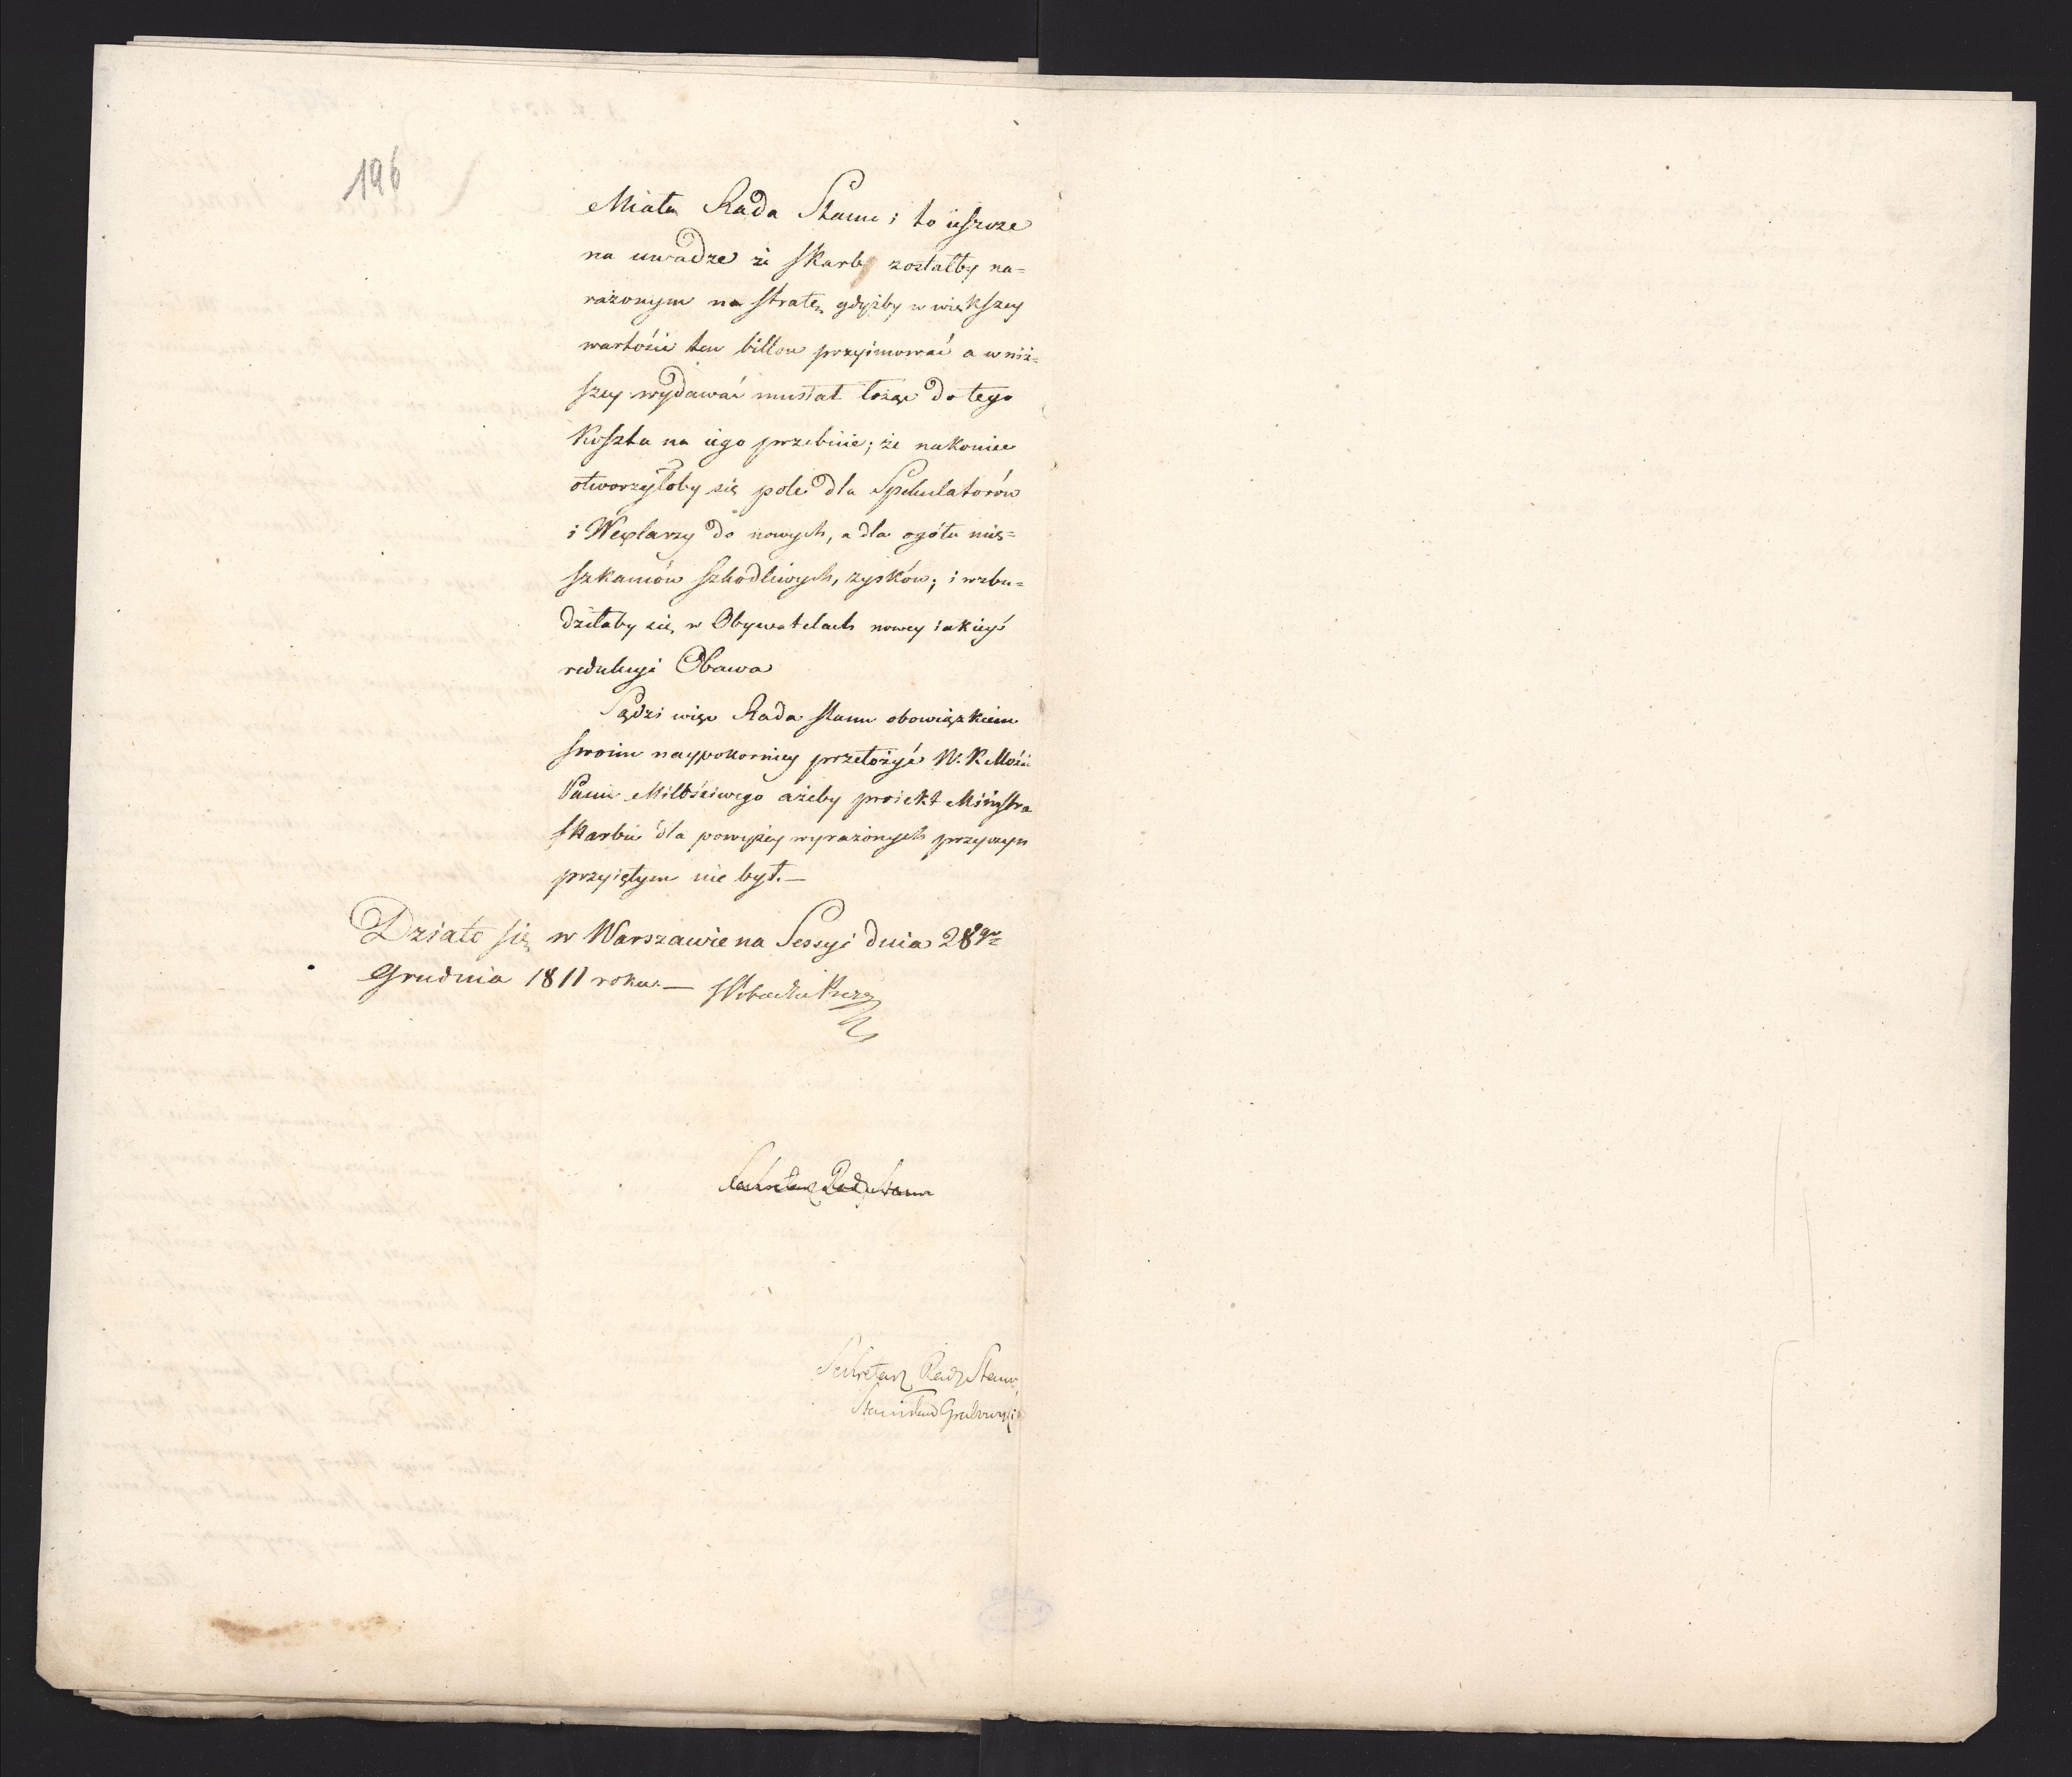 196
Miała Rada Stanu i to ieszcze
na uwadze że skarb zostałby na=
rażonym na stratę gdyżby w większey
wartości ten billon przyimować a w niż=
szey wydawać musiał łożąc do tego
koszta na iego przebicie; że nakoniec
otworzyłoby się pole dla Spekulatorów
i Wexlarzy do nowych, a dla ogółu mie=
szkańców szkodliwych, zysków; i wzbu=
dziłaby się w Obywatelach nowey iakieyś
redukcyi Obawa
Sądzi więc Rada stanu obowiązkiem
swoim naypokorniey przełożyć W. K. Mości
Panu Miłościwego ażeby proiekt Ministra
skarbu dla powyżey wyrażonych przyczyn
przyiętym nie był.—
Działo się w Warszawie na Sessyi dnia 28go
Grudnia 1811 roku.—
Sekretarz Rady Stanu
Sekretarz Rady Stanu
Stanisław Grabowski